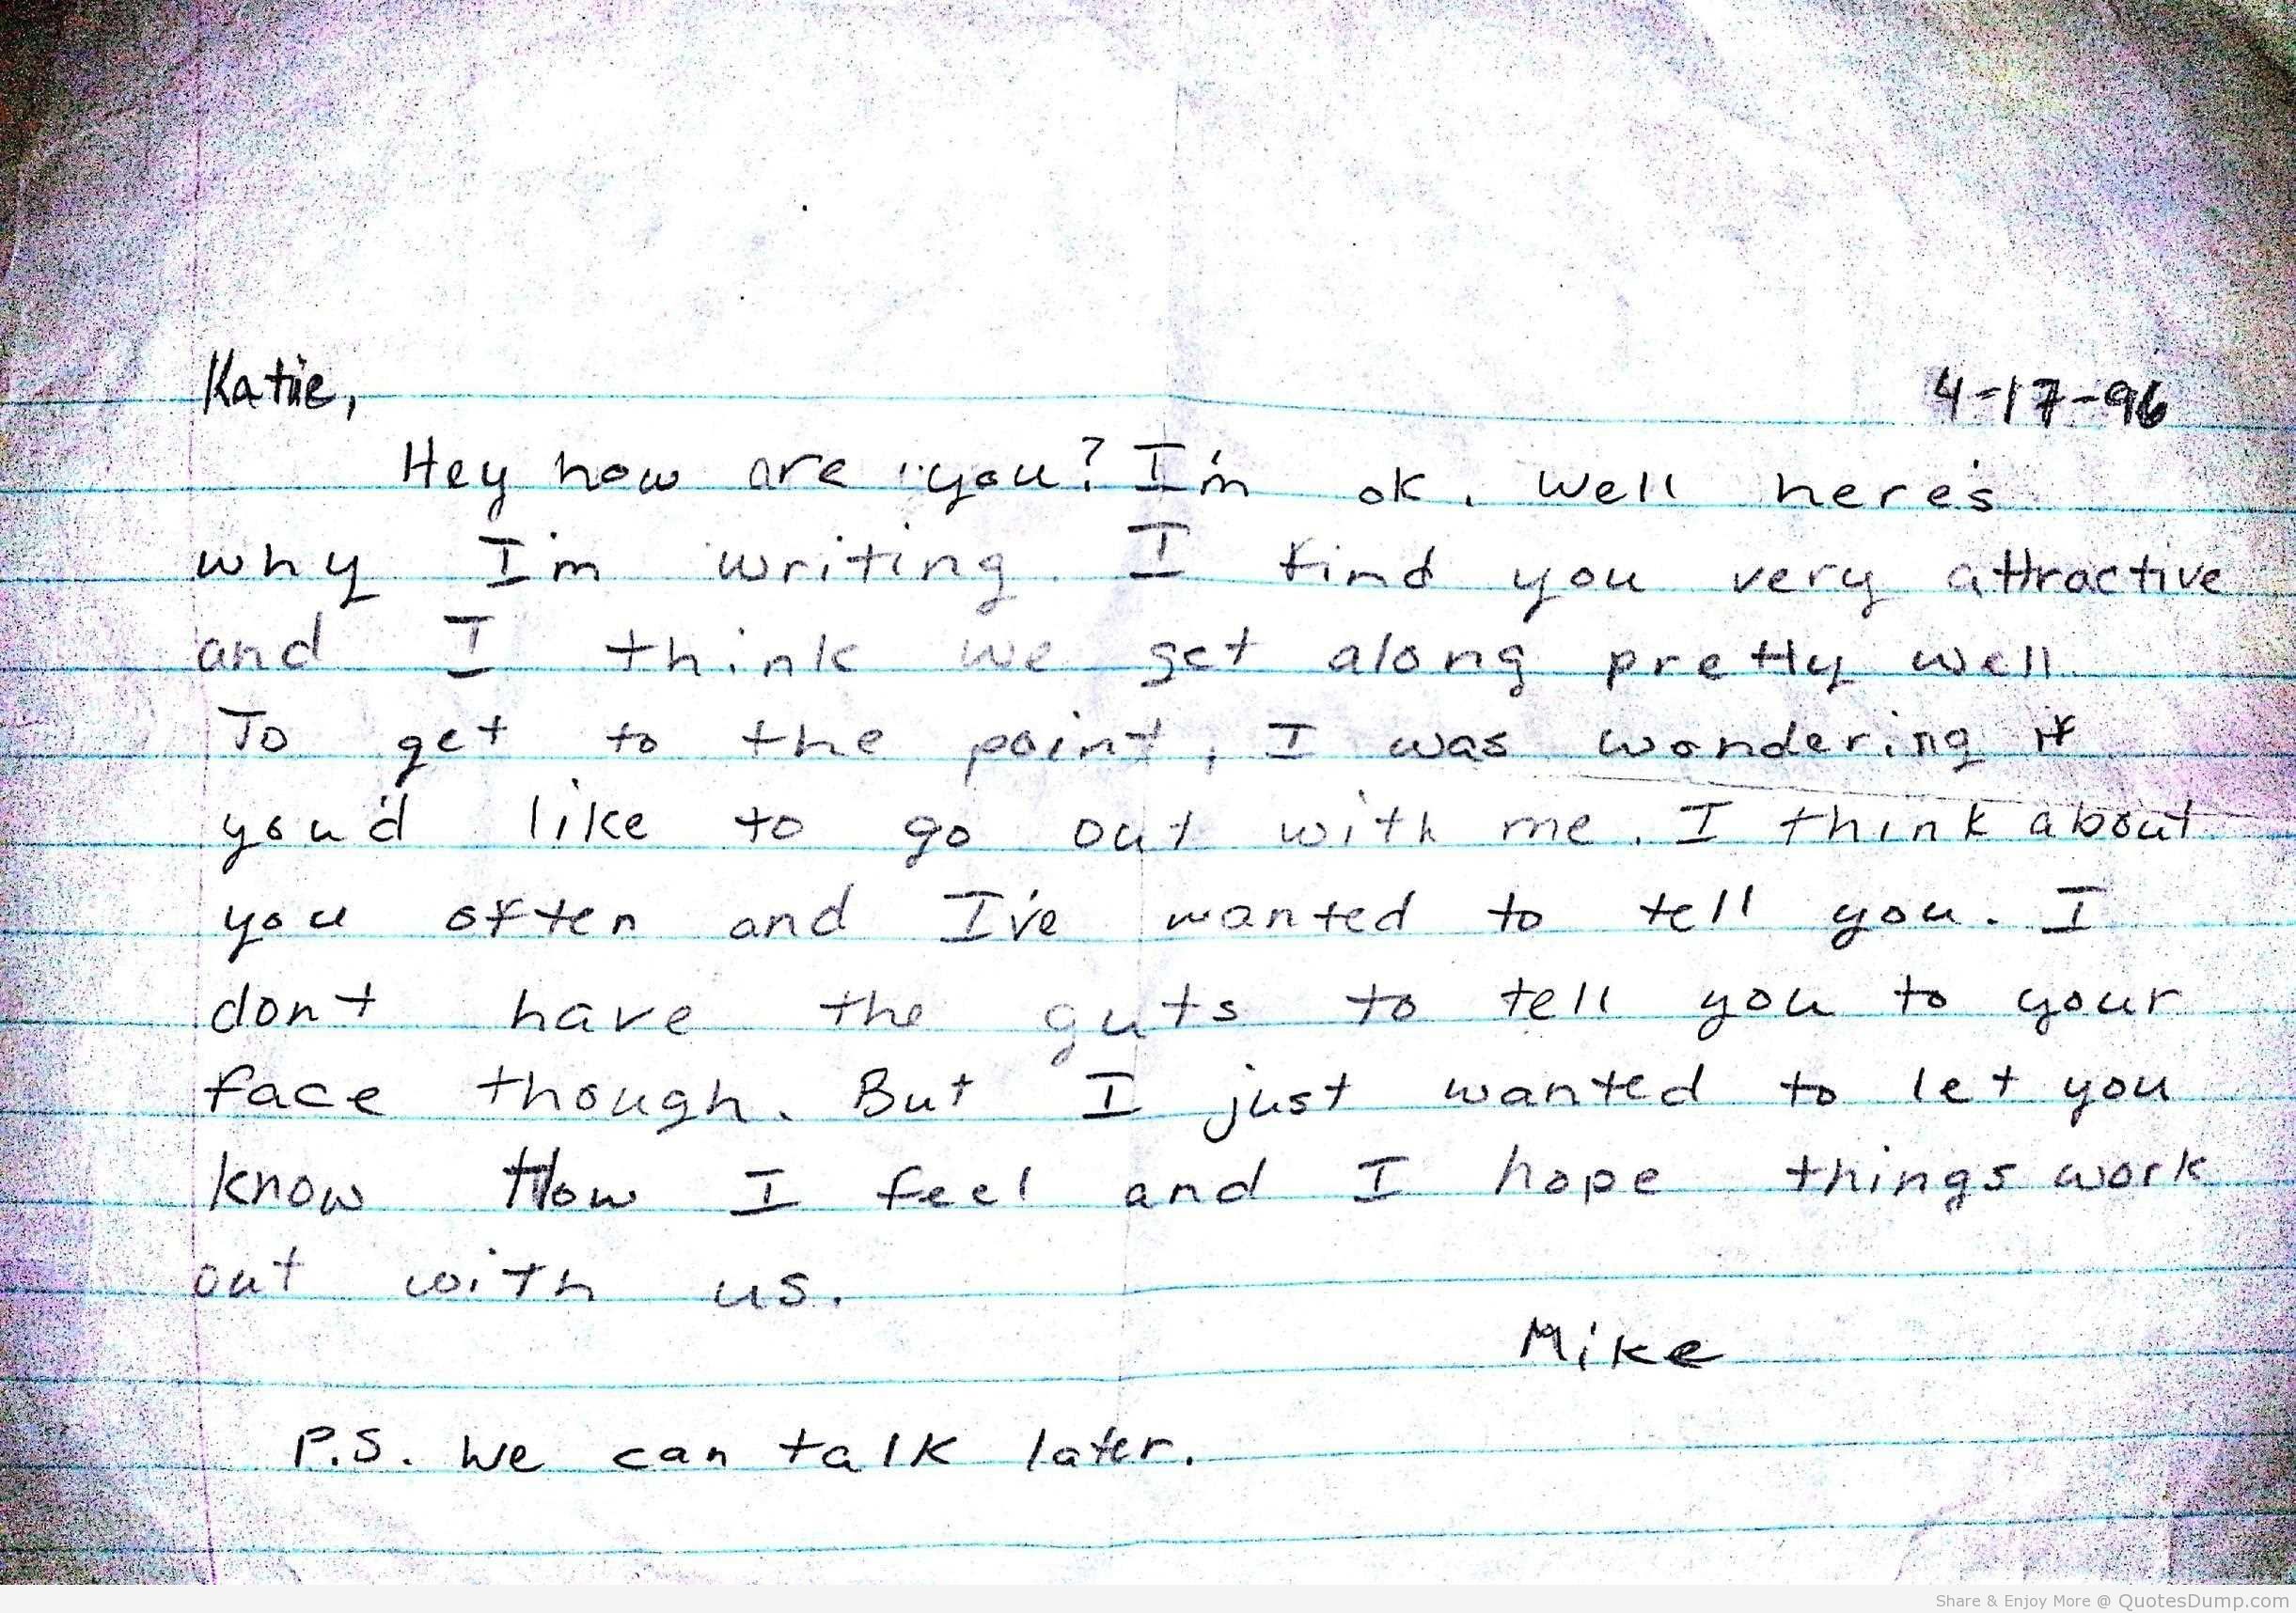 Katie, 4-17-96
Hey how are you? I'm ok. Well here's
why I'm writing. I find you very attractive
and I think we get along pretty well.
To get to the point, I was wondering if
you'd like to go out with me. I think about
you often and I've wanted to tell you. I
don't have the guts to tell you to your
face though. But I just wanted to let you
know How I feel and I hope things work
out with us.
Mike
P.S. We can talk later.
Share & Enjoy More @ QuotesDump.com